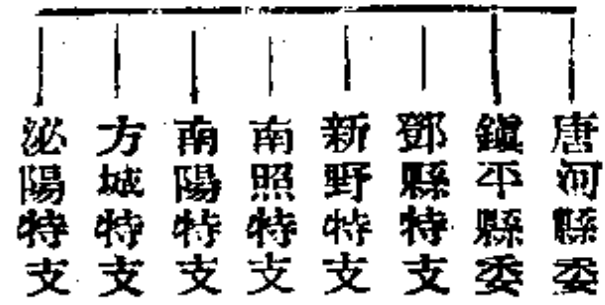 唐河縣委
鎭平縣委
鄧縣特支
新野特支
南照特支
南陽特支
方城特支
泌陽特支